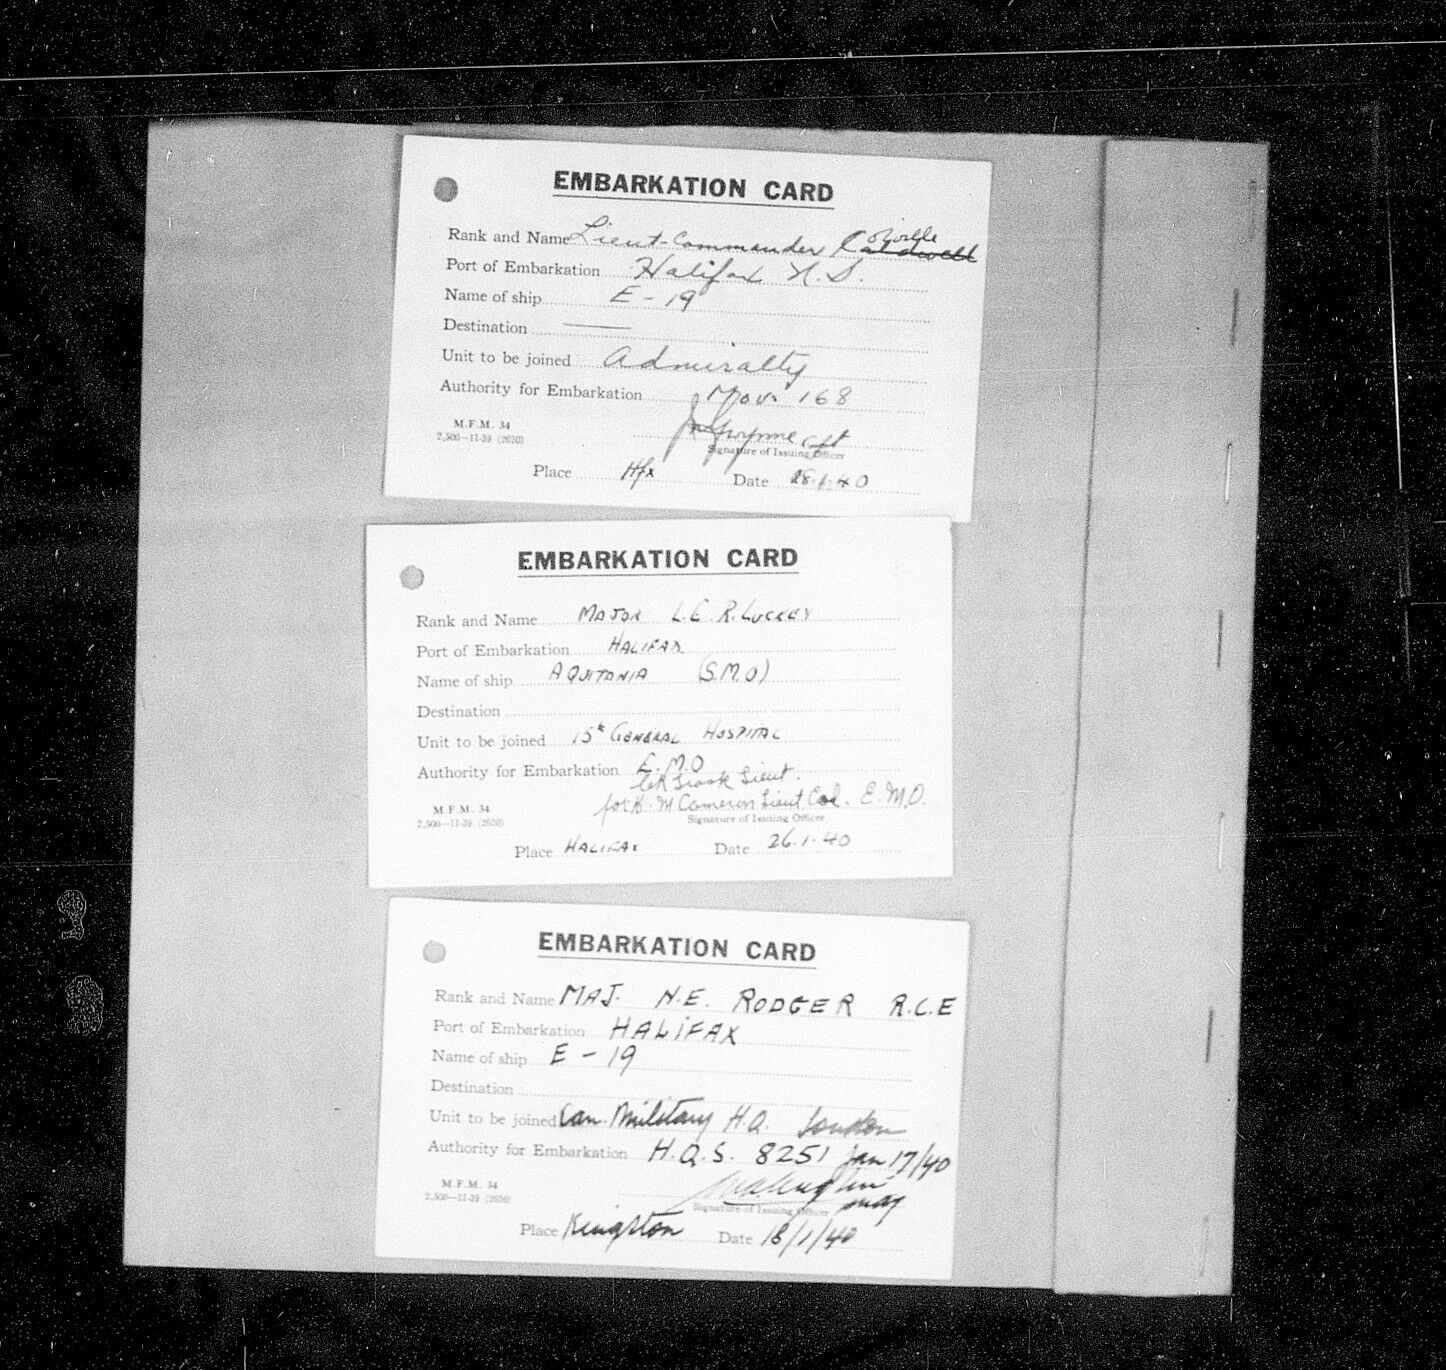 EMBARKATION CARD
Rank and Name Lieut-Commander
Port of Embarkation Halifax N.S.
Name of ship E-19
Destination ——
Unit to be joined Admiralty
Authority for Embarkation Mov. 168
M.F.M. 34
2,500—11-39 (2620)
Signature of Issuing Officer
Place Hfx Date
EMBARKATION CARD
Rank and Name MAJOR L.E.R. LUCKEY
Port of Embarkation HALIFAX
Name of ship AQUITANIA (S.M.O)
Destination
Unit to be joined 15th GENERAL HOSPITAL
Authority for Embarkation E.M.O
Lieut.
for K. M Cameron Lieut Col. E.M.O.
M.F.M. 34
2,500—11-39 (2620)
Signature of Issuing Officer
Place HALIFAX Date 26.1.40
EMBARKATION CARD
Rank and Name MAJ. N.E. RODGER R.C.E
Port of Embarkation HALIFAX
Name of ship E-19
Destination
Unit to be joined Can. Military H.Q. London
Authority for Embarkation H.Q.S. 8251 Jan 17/40
M.F.M. 34
2,500—11-39 (2620)
Signature of Issuing Officer maj
Place Kingston Date 18/1/40